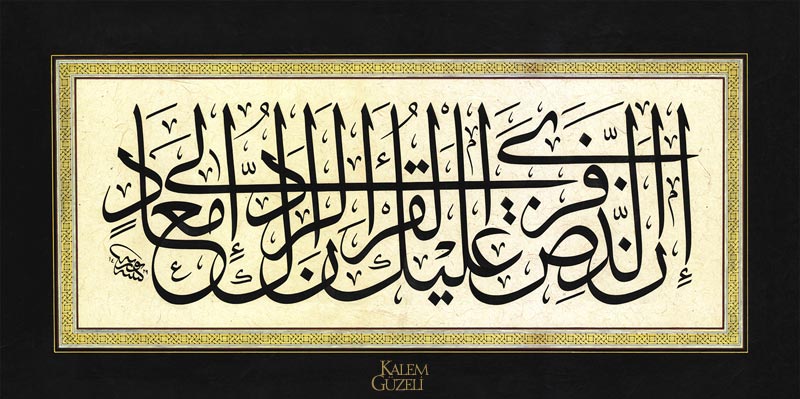 إِنَّ الَّذِي فَرَضَ عَلَيْكَ الْقُرْآنَ لَرَادُّكَ إِلَى مَعَادٍ
KALEM
GÜZELİ